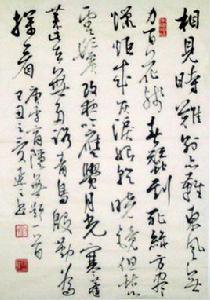 相見時難別亦難東風無
力百花殘春蠶到死絲方盡
蠟炬成灰淚始乾曉鏡但愁
雲鬢改夜吟應覺月光寒
蓬山此去無多路青鳥殷勤為
探看 唐李商隱無題一首
己丑之夏